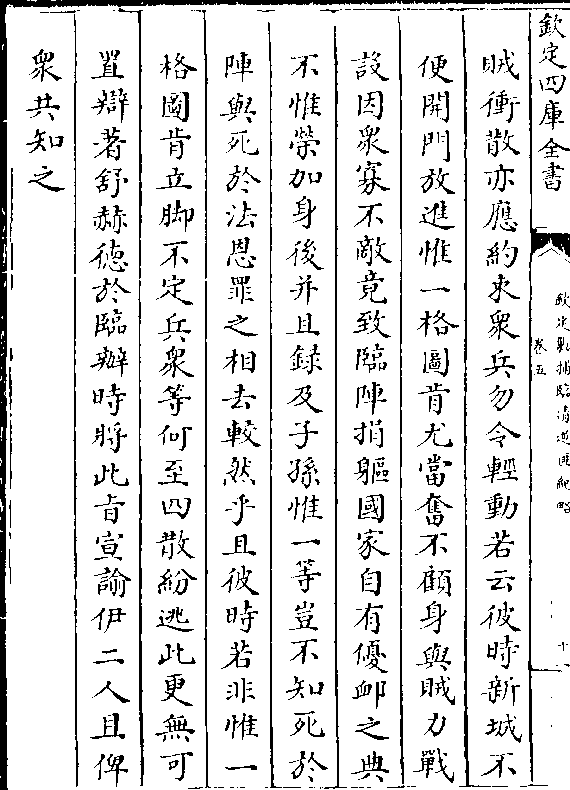 欽定四庫全書
欽定剿捕臨清逆匪紀略
卷五
十一
賊衝散亦應約束衆兵勿令輕動若云彼時新城不
便開門放進惟一格圖肯尤當奮不顧身與賊力戰
設因衆寡不敵竟致臨陣捐軀國家自有優卹之典
不惟榮加身後并且録及子孫惟一等豈不知死於
陣與死於法恩罪之相去較然乎且彼時若非惟一
格圖肯立脚不定兵衆等何至四散紛逃此更無可
置辯者舒赫德於臨辦時將此旨宣諭伊二人且俾
衆共知之